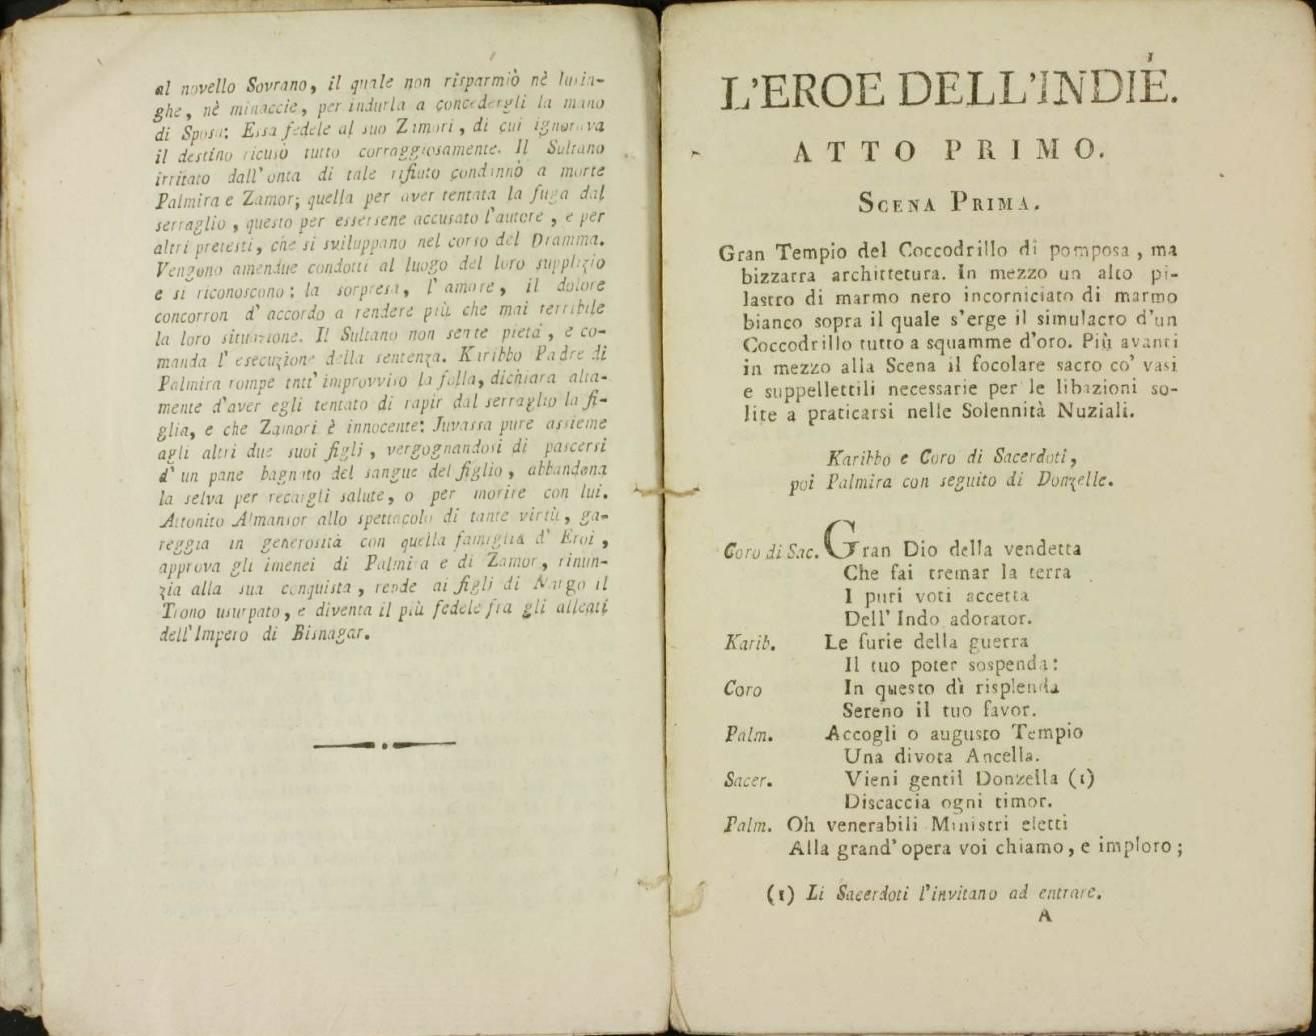 al novello Sovrano, il quale non risparmiò nè lusin-
ghe, nè minaccie, per indurla a concedergli la mano
di Sposa: Essa fedele al suo Zimori, di cui ignorava
il destino ricusò tutto corraggiosamente. Il Sultano
irritato dall' onta di tale rifiuto condannò a morte
Palmira e Zamor; quella per aver tentata la fuga dal
serraglio, questo per essersene accusato l'autore, e per
altri pretesti, che si sviluppano nel corso del Dramma.
Vengono amendue condotti al luogo del loro supplizio
e si riconoscono: la sorpresa, l' amore, il dolore
concorron d' accordo a rendere più che mai terribile
la loro situazione. Il Sultano non sente pietà, e co-
manda l' esecuzione della sentenza. Karibbo Padre di
Palmira rompe tutt' improvviso la folla, dichiara alta-
mente d'aver egli tentato di rapir dal serraglio la fi-
glia, e che Zamori è innocente: Juvassa pure assieme
agli altri due suoi figli, vergognandosi di pascersi
d' un pane bagnato del sangue del figlio, abbandona
la selva per recargli salute, o per morire con lui.
Attonito Almansor allo spettacolo di tante virtù, ga-
reggia in generosità con quella famiglia d' Eroi,
approva gli imenei di Palmira e di Zamor, rinun-
zia alla sua conquista, rende ai figli di Nargo il
Trono usurpato, e diventa il più fedele fra gli alleati
dell' Impero di Bisnagar.
L'EROE DELL'INDIE.
ATTO PRIMO.
SCENA PRIMA.
Gran Tempio del Coccodrillo di pomposa, ma
bizzarra archittetura. In mezzo un alto pi-
lastro di marmo nero incorniciato di marmo
bianco sopra il quale s'erge il simulacro d'un
Coccodrillo tutto a squamme d'oro. Più avanti
in mezzo alla Scena il focolare sacro co' vasi
e suppellettili necessarie per le libazioni so-
lite a praticarsi nelle Solennità Nuziali.
Karibbo e Coro di Sacerdoti,
poi Palmira con seguito di Donzelle.
Coro di Sac. Gran Dio della vendetta
Che fai tremar la terra
I puri voti accetta
Dell' Indo adorator.
Karib. Le furie della guerra
Il tuo poter sospenda:
Coro In questo dì risplenda
Sereno il tuo favor.
Palm. Accogli o augusto Tempio
Una divota Ancella.
Sacer. Vieni gentil Donzella (1)
Discaccia ogni timor.
Palm. Oh venerabili Ministri eletti
Alla grand' opera voi chiamo, e imploro;
(1) Li Sacerdoti l'invitano ad entrare.
A